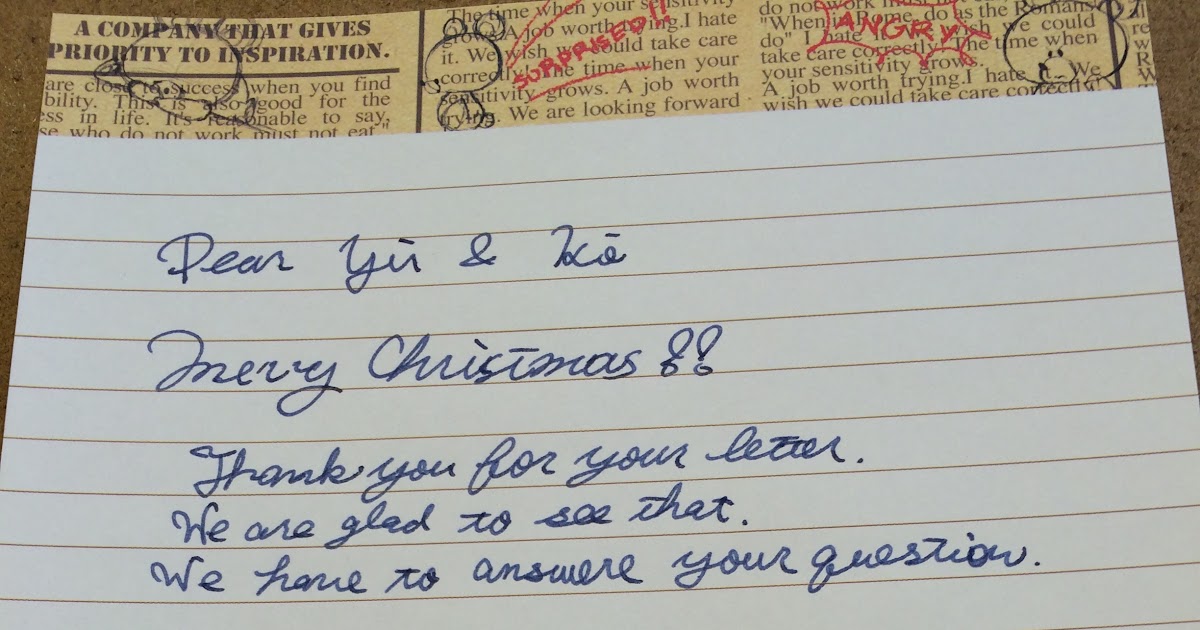 A COMPANY THAT GIVES
PRIORITY TO INSPIRATION.
are close to success when you find
bility. This is so good for the
ess in life. It's reasonable to say,
se who do not work must not eat"
The time when your sensitivity
grows. A job worth trying.I hate
it. We wish we could take care
correctly. The time when your
sensitivity grows. A job worth
trying. We are looking forward
SORPRISED!!
do not work must not
"When do as the Romans
do" I hate we could
take care correctly. The time when
your sensitivity grows.
A job worth trying.I hate it. We
wish we could take care correctly.
ANGRY
Dear Yū & Kō
Merry Christmas!!
Thank you for your letter.
We are glad to see that.
We have to answere your question.